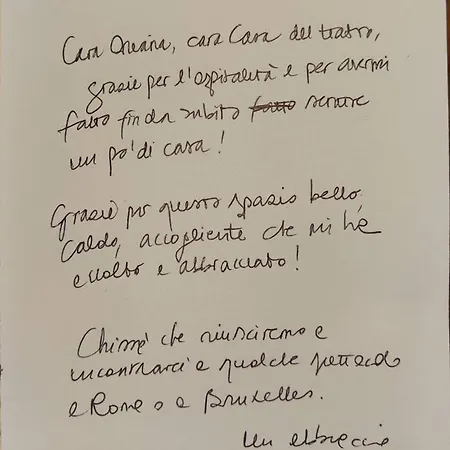 Cara Oriana, cara Casa del teatro,
grazie per l'ospitalità e per avermi
fatto fin da subito fatto sentire
un po' di casa!
Grazie per questo spazio bello,
caldo, accogliente che mi ha
accolto e abbracciato!
Chissà che riusciremo a
incontrarci a qualche spettacolo
a Roma o a Bruxelles.
Un abbraccio